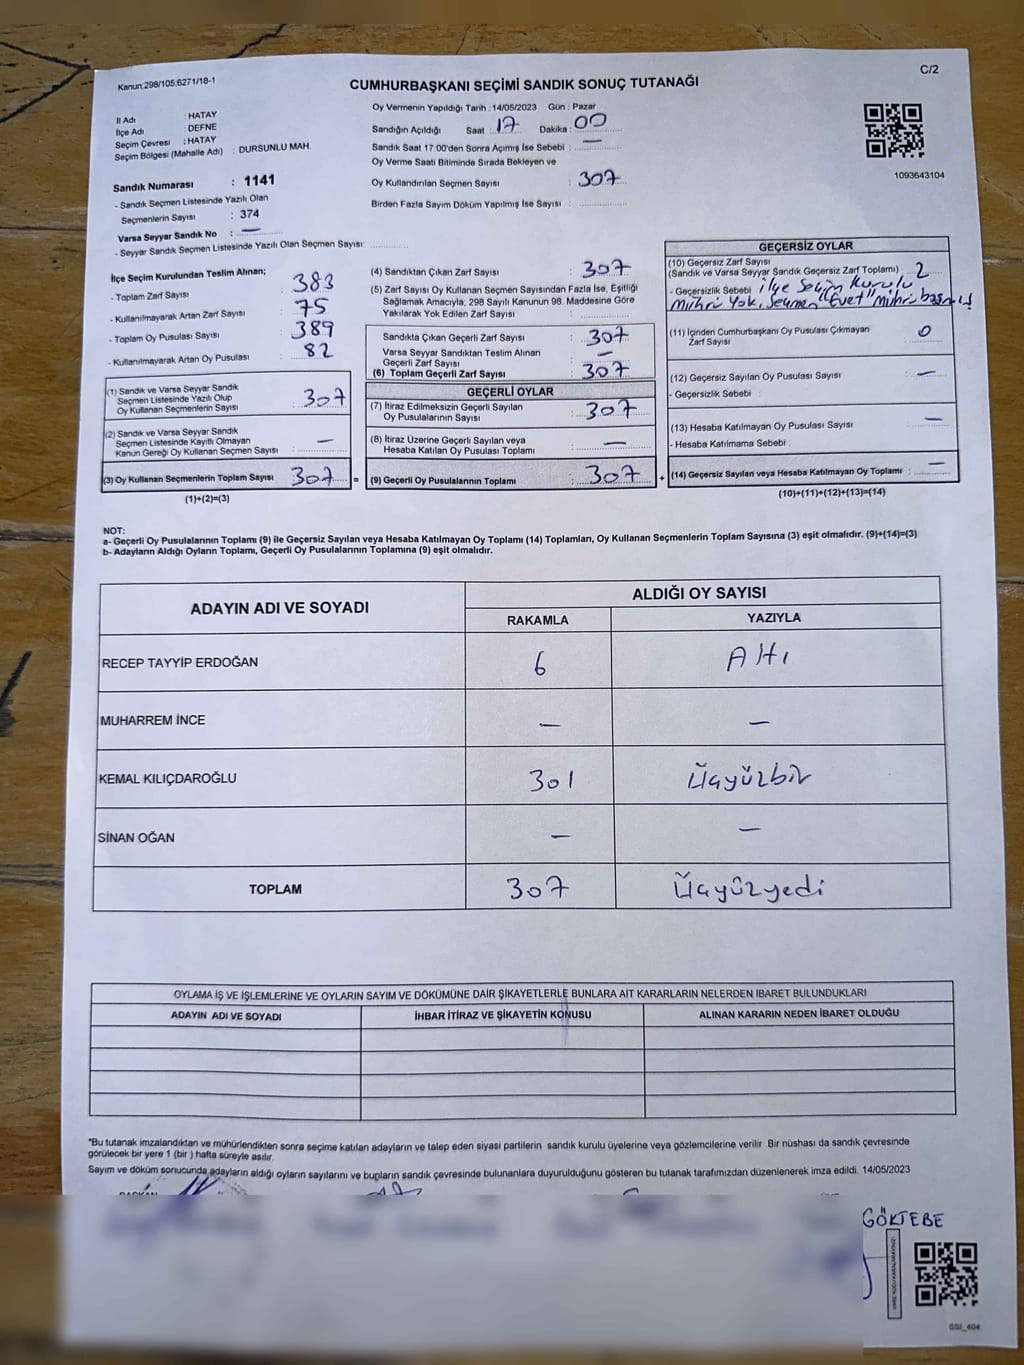 Kanun:298/105:6271/18-1
C/2
CUMHURBAŞKANI SEÇİMİ SANDIK SONUÇ TUTANAĞI
İl Adı : HATAY
İlçe Adı : DEFNE
Seçim Çevresi : HATAY
Seçim Bölgesi (Mahalle Adı) : DURSUNLU MAH.
Oy Vermenin Yapıldığı Tarih : 14/05/2023 Gün : Pazar
Sandığın Açıldığı Saat : 17 Dakika : 00
Sandık Saat 17:00'den Sonra Açımış İse Sebebi : —
Oy Verme Saati Bitiminde Sırada Bekleyen ve
Oy Kullandırılan Seçmen Sayısı : 307
Birden Fazla Sayım Döküm Yapılmış İse Sayısı :
1093643104
Sandık Numarası : 1141
- Sandık Seçmen Listesinde Yazılı Olan
Seçmenlerin Sayısı : 374
Varsa Seyyar Sandık No : —
- Seyyar Sandık Seçmen Listesinde Yazılı Olan Seçmen Sayısı:
İlçe Seçim Kurulundan Teslim Alınan;
- Toplam Zarf Sayısı : 383
- Kullanılmayarak Artan Zarf Sayısı : 75
- Toplam Oy Pusulası Sayısı : 389
- Kullanılmayarak Artan Oy Pusulası : 82
(1) Sandık ve Varsa Seyyar Sandık
Seçmen Listesinde Yazılı Olup
Oy Kullanan Seçmenlerin Sayısı : 307
(2) Sandık ve Varsa Seyyar Sandık
Seçmen Listesinde Kayıtlı Olmayan
Kanun Gereği Oy Kullanan Seçmen Sayısı : —
(3) Oy Kullanan Seçmenlerin Toplam Sayısı 307 =
(1)+(2)=(3)
(4) Sandıktan Çıkan Zarf Sayısı : 307
(5) Zarf Sayısı Oy Kullanan Seçmen Sayısından Fazla İse, Eşitliği
Sağlamak Amacıyla; 298 Sayılı Kanunun 98. Maddesine Göre
Yakılarak Yok Edilen Zarf Sayısı :
Sandıkta Çıkan Geçerli Zarf Sayısı : 307
Varsa Seyyar Sandıktan Teslim Alınan
Geçerli Zarf Sayısı : —
(6) Toplam Geçerli Zarf Sayısı : 307
GEÇERLİ OYLAR
(7) İtiraz Edilmeksizin Geçerli Sayılan
Oy Pusulalarının Sayısı : 307
(8) İtiraz Üzerine Geçerli Sayılan veya
Hesaba Katılan Oy Pusulası Toplamı : —
(9) Geçerli Oy Pusulalarının Toplamı : 307 +
GEÇERSİZ OYLAR
(10) Geçersiz Zarf Sayısı
(Sandık ve Varsa Seyyar Sandık Geçersiz Zarf Toplamı) : 2
- Geçersizlik Sebebi : ilçe Seçim Kurulu
Mührü Yok, Seçmen "Evet" Mührü basmış
(11) İçinden Cumhurbaşkanı Oy Pusulası Çıkmayan
Zarf Sayısı : 0
(12) Geçersiz Sayılan Oy Pusulası Sayısı : —
- Geçersizlik Sebebi :
(13) Hesaba Katılmayan Oy Pusulası Sayısı : —
- Hesaba Katılmama Sebebi :
(14) Geçersiz Sayılan veya Hesaba Katılmayan Oy Toplamı : —
(10)+(11)+(12)+(13)=(14)
NOT:
a- Geçerli Oy Pusulalarının Toplamı (9) ile Geçersiz Sayılan veya Hesaba Katılmayan Oy Toplamı (14) Toplamları, Oy Kullanan Seçmenlerin Toplam Sayısına (3) eşit olmalıdır. (9)+(14)=(3)
b- Adayların Aldığı Oyların Toplamı, Geçerli Oy Pusulalarının Toplamına (9) eşit olmalıdır.
ADAYIN ADI VE SOYADI
ALDIĞI OY SAYISI
RAKAMLA YAZIYLA
RECEP TAYYİP ERDOĞAN 6 Altı
MUHARREM İNCE — —
KEMAL KILIÇDAROĞLU 301 Üçyüzbir
SİNAN OĞAN — —
TOPLAM 307 Üçyüzyedi
OYLAMA İŞ VE İŞLEMLERİNE VE OYLARIN SAYIM VE DÖKÜMÜNE DAİR ŞİKAYETLERLE BUNLARA AİT KARARLARIN NELERDEN İBARET BULUNDUKLARI
ADAYIN ADI VE SOYADI İHBAR İTİRAZ VE ŞİKAYETİN KONUSU ALINAN KARARIN NEDEN İBARET OLDUĞU
*Bu tutanak imzalandıktan ve mühürlendikten sonra seçime katılan adayların ve talep eden siyasi partilerin sandık kurulu üyelerine veya gözlemcilerine verilir Bir nüshası da sandık çevresinde
görülecek bir yere 1 (bir ) hafta süreyle asılır.
Sayım ve döküm sonucunda adayların aldığı oyların sayılarını ve bunların sandık çevresinde bulunanlara duyurulduğunu gösteren bu tutanak tarafımızdan düzenlenerek imza edildi. 14/05/2023
GÖKTEBE